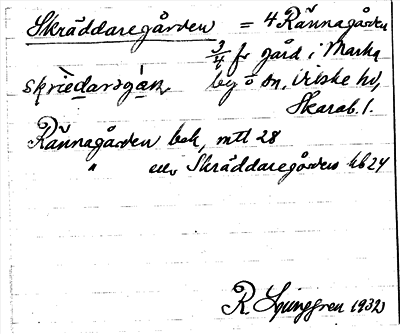 Skräddaregården = 4 Rännagården
3/4 fr gård i Marka
skriedarogán by o sn, Vilske hd,
Skarab. l.
Rännagården bek, mtl 28
" eller Skräddaregården kb 24
R. Ljunggren 1932